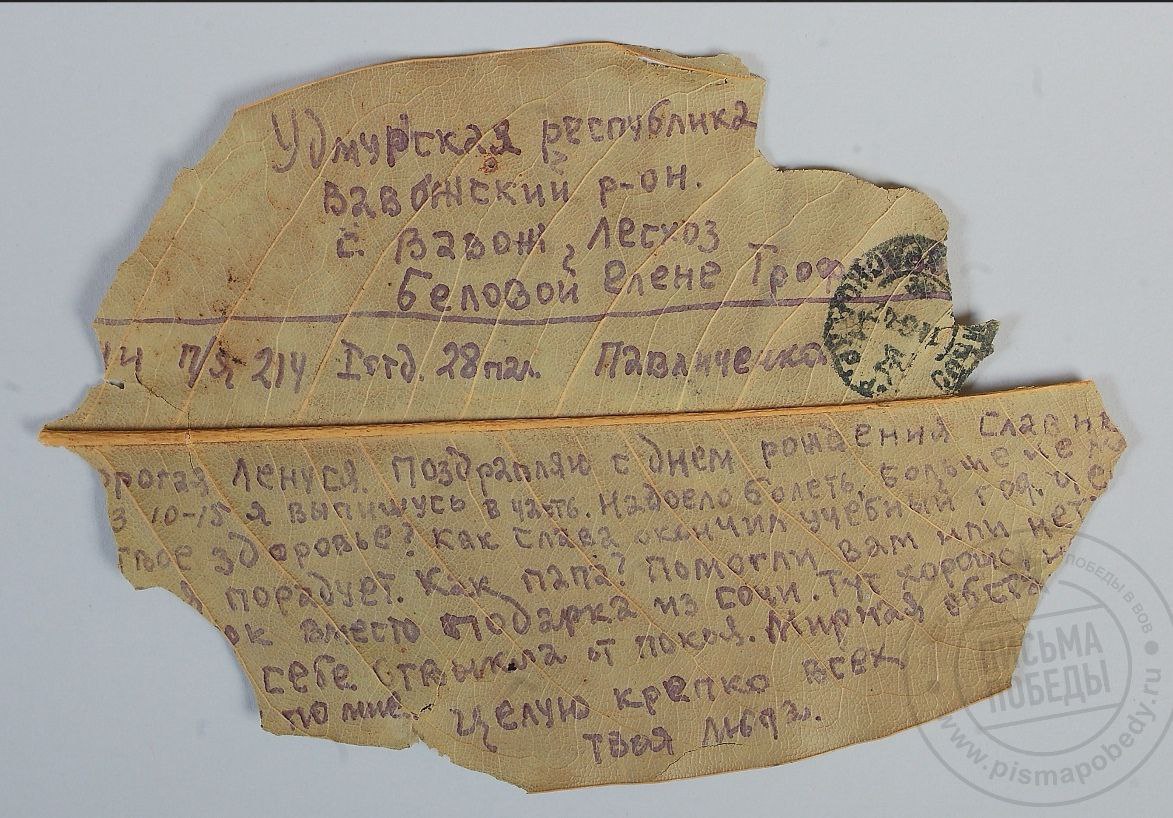 Удмурская республика
Вавожский р-он.
с. Вавож, Лесхоз
Беловой Елене Троф
п/я 214 I отд. 28 пал. Павличенко
рогая Ленуся. Поздравляю с днем рождения Славика
10-15 я выпишусь в часть. Надоело болеть. Больше
твое здоровье? Как Слава окончил учебный год.
порадует. Как папа? Помогли вам или нет?
ок вместо подарка из Сочи. Тут хорошо, н
себе отвыкла от покоя. Мирная обста
по мне. Целую крепко всех
твоя Люба.
ПИСЬМА
ПОБЕДЫ
ПОБЕДЫ В ВОВ
www.pismapobedy.ru